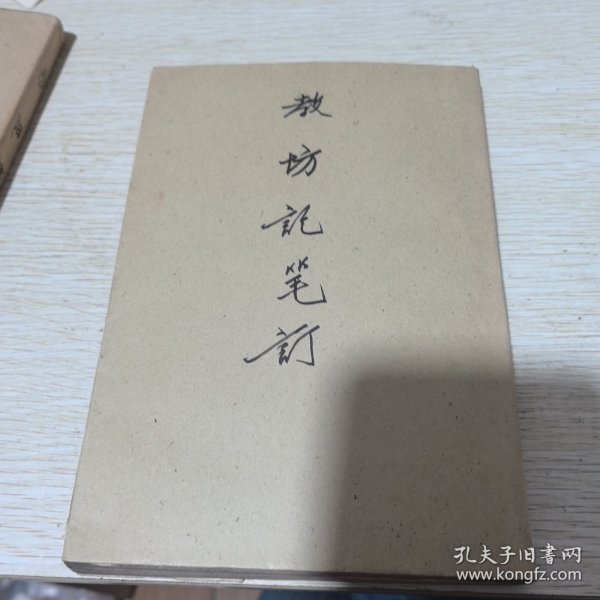 教坊記笔訂
孔夫子旧书网
www.kongfz.com